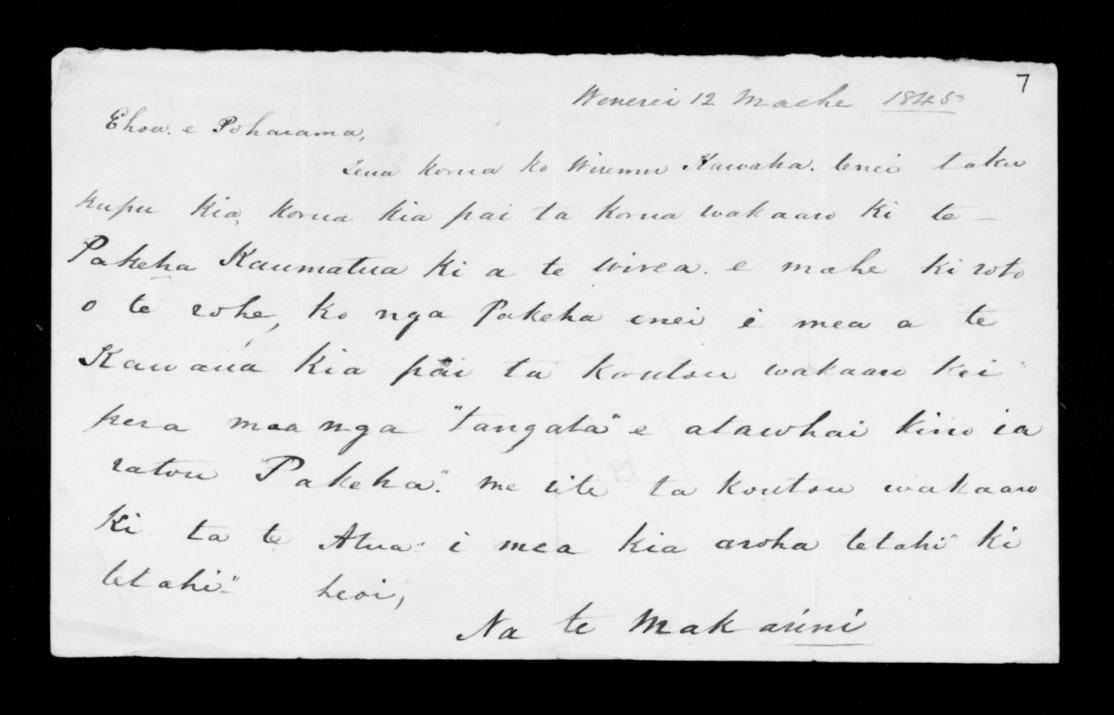 7
Wenerei 12 Maehe 1845
Ehoa e Poharama,
Tena korua ko Wiremu Kawaha. tenei taku
kupu kia korua kia pai ta korua wakaaro ki te
Pakeha Kaumatua ki a te Wirea. e mahe ki roto
o te rohe, ko nga Pakeha enei i mea a te
Kawana kia pai ta koutou wakaaro kei
pera maa nga "tangata" e atawhai kino ia
ratou Pakeha". me rite ta koutou wakaaro
ki ta te Atua: i mea kia aroha tetahi" ki
tetahi" heoi,
Na te Makarini